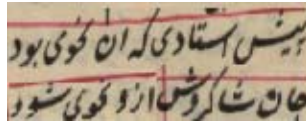 پیش استادی که ان نحوی بود
جان شاکردش ازو نحوی شود